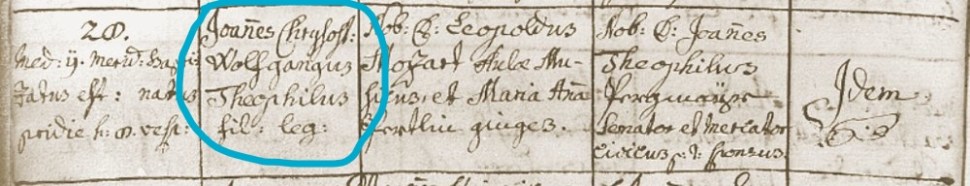 28.
med: 11. merid: bapti
zatus est: natus
pridie h: 8. vesp:
Joan̄es Chrysost:
Wolfgangus
Theophilus
fil: leg:
Nob: D: Leopoldus
Mozart Aulæ Mu-
sicus, et Maria An̄a
Pertlin giuges.
Nob: D: Joan̄es
Theophilus
Pergmayr
Senator et Mercator
civicus p: t: sponsus
Idem